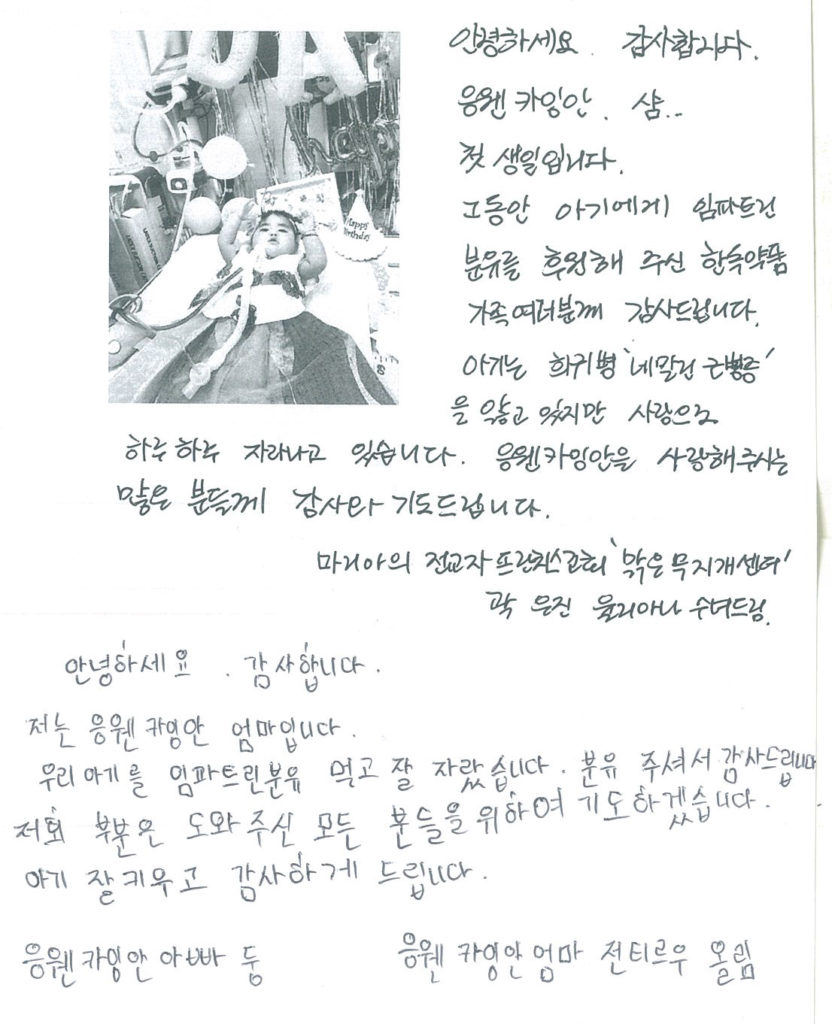 happy
Birthday
안녕하세요. 감사합니다.
응웬 카잉안. 샴..
첫 생일입니다.
그동안 아기에게 임파트린
분유를 후원해 주신 한숙약품
가족 여러분께 감사드립니다.
아기는 희귀병 '네말린 근병증'
을 앓고 있지만 사랑으로
하루하루 자라나고 있습니다. 응웬카잉안을 사랑해주시는
많은 분들께 감사와 기도드립니다.
마리아의 전교자 프란치스코회 '맑은 무지개센터'
곽 은진 율리아나 수녀드림.
안녕하세요. 감사합니다.
저는 응웬 카잉안 엄마입니다.
우리 아기를 임파트린분유 먹고 잘 자랐습니다. 분유 주셔서 감사드립니다
저희 부분은 도와 주신 모든 분들을 위하여 기도하겠습니다.
아기 잘 키우고 감사하게 드립니다.
응웬 카잉안 아빠 둥
응웬 카잉안 엄마 전티르우 올림